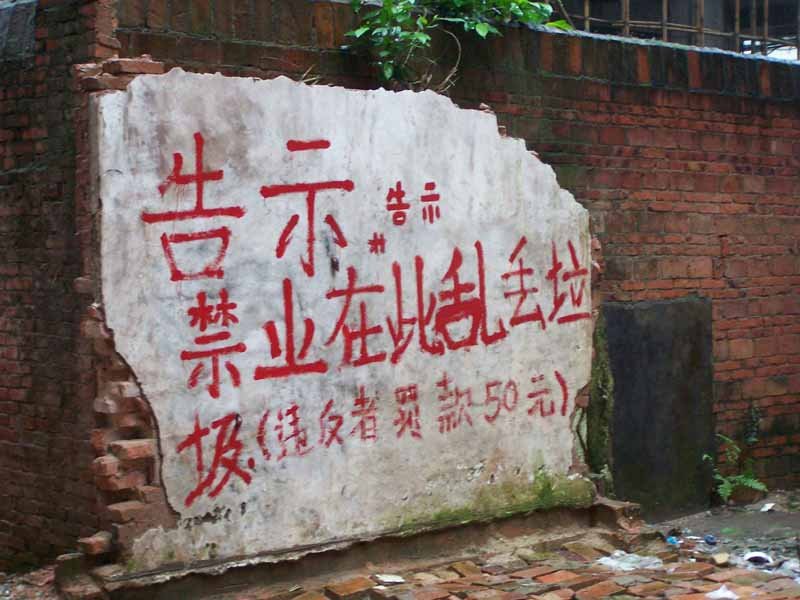 告示
告示
禁业在此乱丢垃
圾(违反者罚款50元)